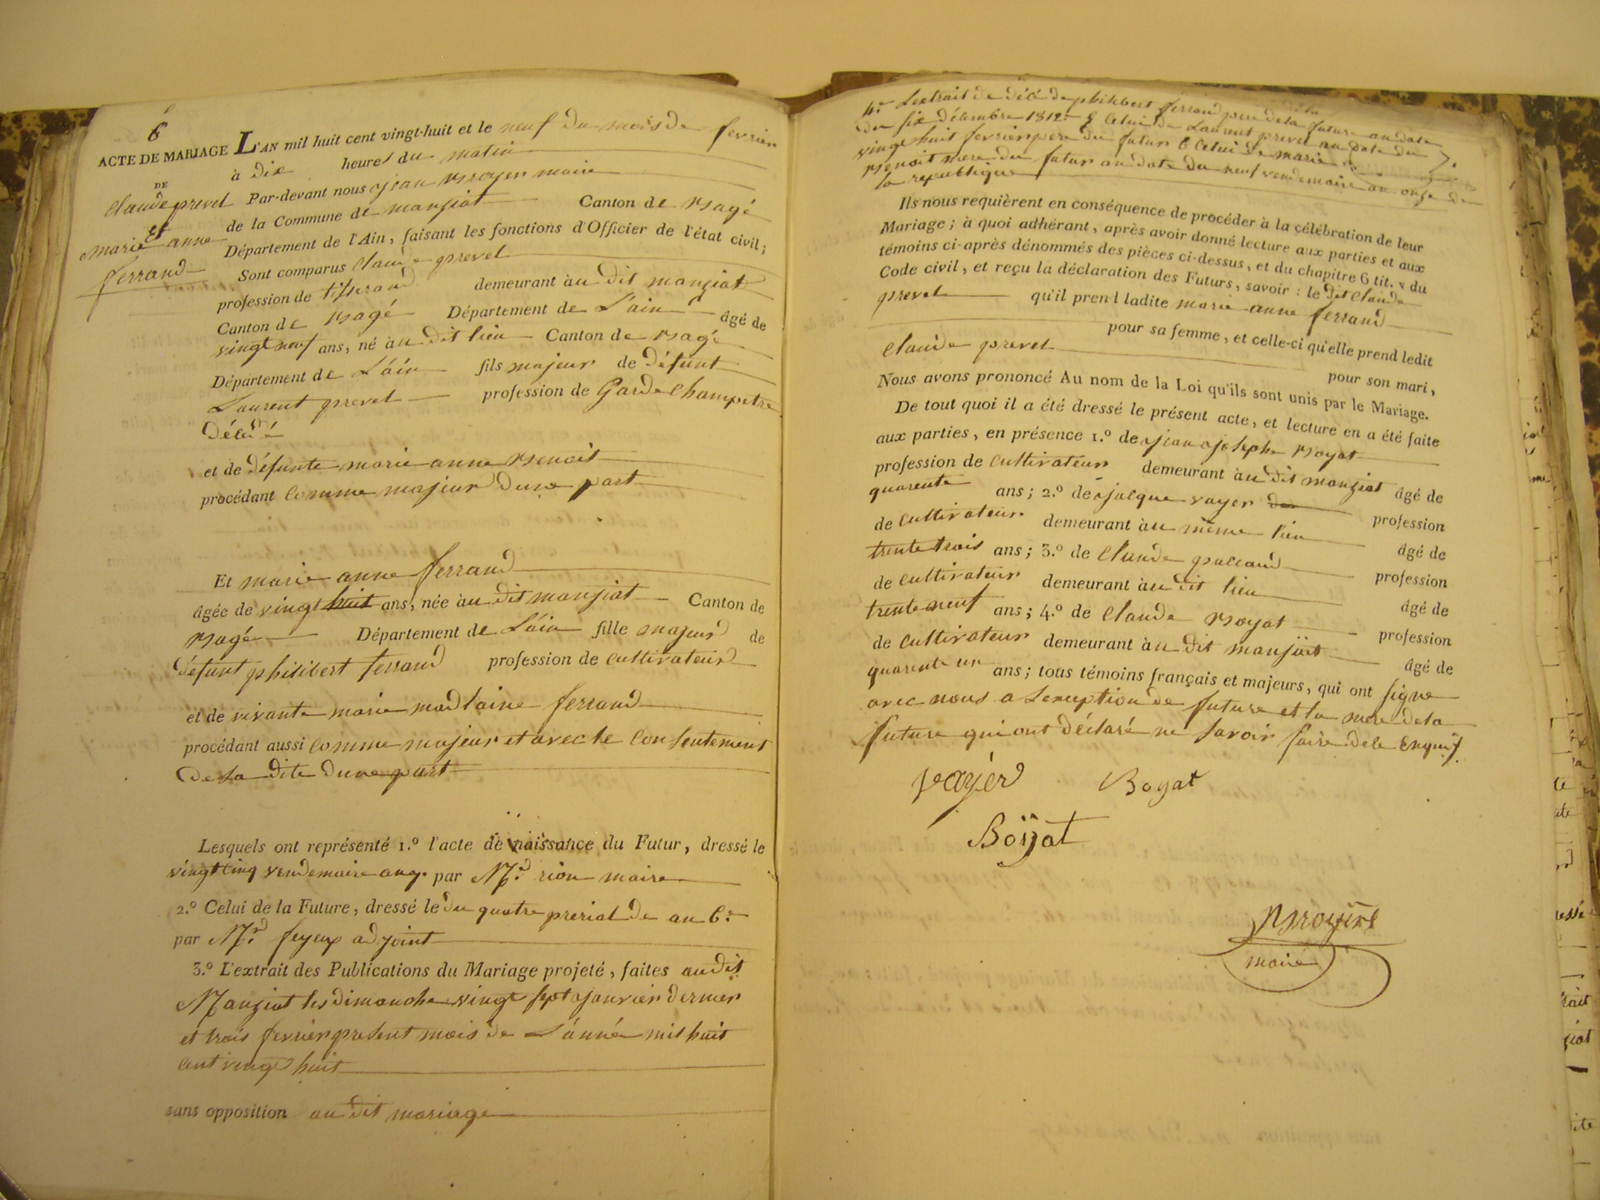 6
ACTE DE MARIAGE
DE
Claude prevel
et
marie anne
ferrand
L'AN mil huit cent vingt-huit et le neuf du mois de fevrier
à dix heures du matin
Par-devant nous jean Broyer maire
de la Commune de manziat Canton de Bagé
Département de l'Ain, faisant les fonctions d'Officier de l'état civil;
Sont comparus Claude prevel
profession de tisserand demeurant àu dit manziat
Canton de Bagé Département de L'ain âgé de
vingt neuf ans, né àu dit lieu Canton de Bagé
Département de L'ain fils majeur de défunt
Laurent prevel profession de Garde Champetre
décédé
et de défunte marie anne Benoit
procédant comme majeur dune part
Et marie anne ferrand
âgée de vingt huit ans, née àu dit manziat Canton de
Bagé Département de L'ain fille majeur de
défunt philibert ferrand profession de cultivateur
et de vivante marie madlaine ferrand
procédant aussi comme majeur et avec le consentement
de sa dite dune part
Lesquels ont représenté 1.º l'acte de naissance du Futur, dressé le
vingt cinq vendemaire an 7. par Mr. rion maire
2.º Celui de la Future, dressé le du quatre prerial de an 6.e
par Mr. feyeux adjoint
3.º L'extrait des Publications du Mariage projeté, faites au dit
Manziat les dimanche vingt sept janvier dernier
et trois fevrier present mois de L'année mil huit
cent vingt huit
sans opposition au dit mariage
4.e Lextrait de décé de philibert ferrand pere de la future au date
du six décembre 1812. & Celui de Laurent prevel au date du
vingt huit fevrier pere du futur & Celui de marie
Benoit mere du futur au date du neuf vendemaire an onze de
la republique
Ils nous requièrent en conséquence de procéder à la célébration de leur
Mariage; à quoi adhérant, après avoir donné lecture aux parties et aux
témoins ci-après dénommés des pièces ci-dessus, et du chapitre 6 tit. v du
Code civil, et reçu la déclaration des Futurs, savoir: le dit Claude
prevel qu'il prend ladite marie anne ferrand
pour sa femme, et celle-ci qu'elle prend ledit
Claude prevel pour son mari,
Nous avons prononcé Au nom de la Loi qu'ils sont unis par le Mariage.
De tout quoi il a été dressé le présent acte, et lecture en a été faite
aux parties, en présence 1.º de jean josephe Boyat
profession de cultivateur demeurant àu dit manziat âgé de
quarente ans; 2.º de jacque vayer profession
de cultivateur demeurant àu même lieu âgé de
trente trois ans; 3.º de Claude paccaud profession
de cultivateur demeurant àu dit lieu âgé de
trente neuf ans; 4.º de Claude Boyat profession
de cultivateur demeurant àu dit manziat âgé de
quarente un ans; tous témoins français et majeurs, qui ont signe
avec nous a Lexeuption de future et la mere de la
future qui ont déclaré ne savoir faire de le enquis
Vayer Boyat
Boÿat
Broyer
maire